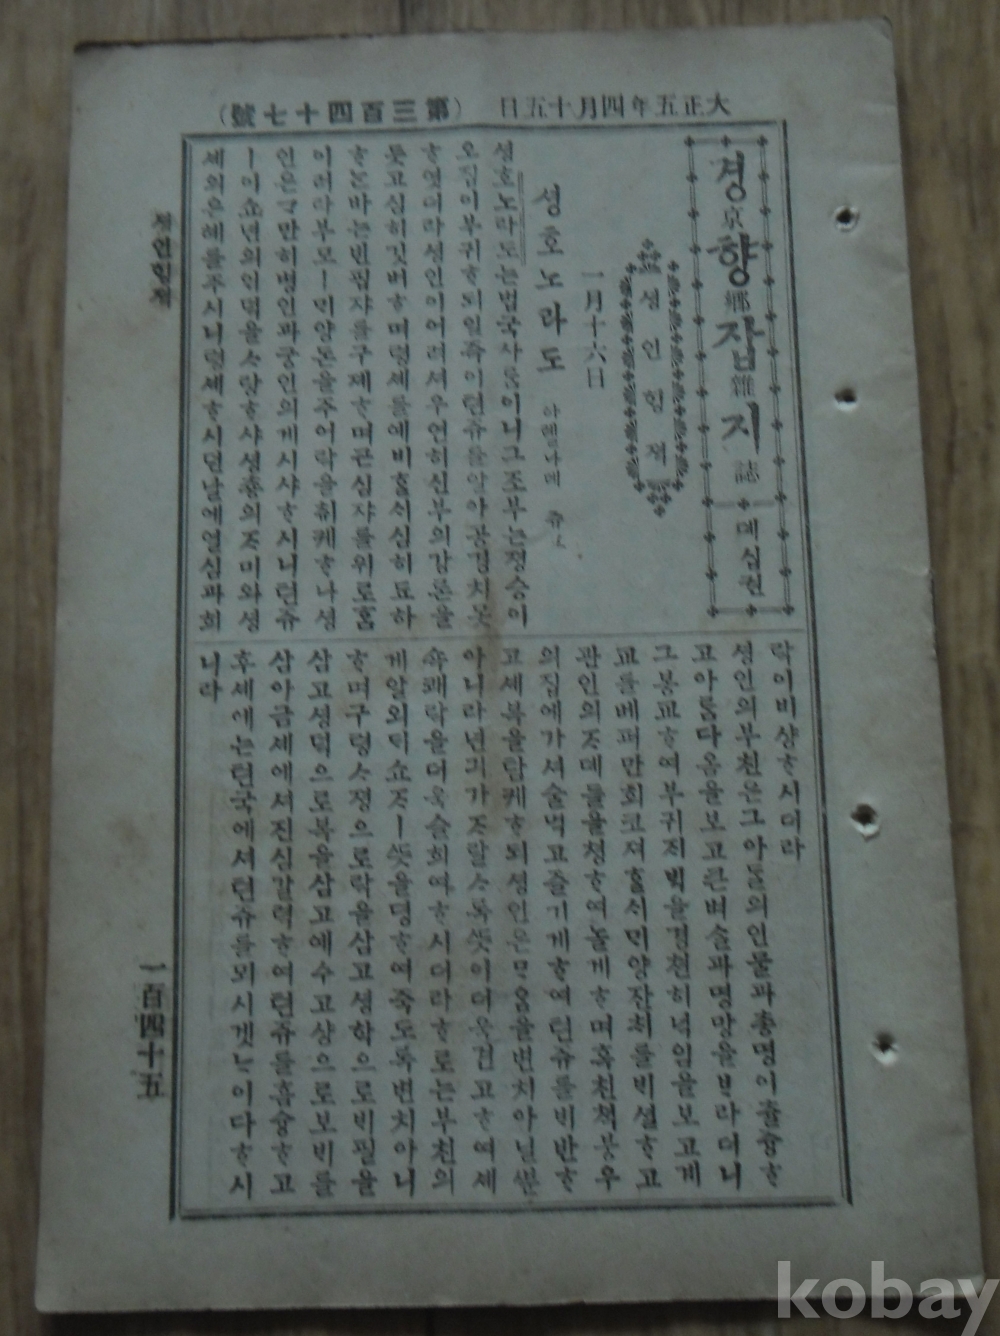 大正五年四月十五日 (第三百四十七號)
경京향鄕잡雜지誌 뎨십권
셩인힝젹
一月十六日
셩호노라도 아렐나데 쥬교
셩호노라도는법국사ᄅᆞᆷ이니그조부는졍승이
오집이부귀ᄒᆞ되일즉이텬쥬를알아공경치못
ᄒᆞ엿더라셩인이어려셔우연히신부의강론을
듯고심히깃버ᄒᆞ며령셰를예비ᄒᆞᆯᄉᆡ심히됴하
ᄒᆞ는바는빈핍쟈를구졔ᄒᆞ며곤심쟈를위로홈
이러라부모ㅣᄆᆡ양돈을주어락을ᄎᆔ케ᄒᆞ나셩
인은ᄀᆞ만히병인과궁인의게시샤ᄒᆞ시니텬쥬
ㅣ이쇼년의인덕을ᄉᆞ랑ᄒᆞ샤셩총의ᄌᆞ미와셩
셰의은혜를주시니령셰ᄒᆞ시던날에열심과희
락이비상ᄒᆞ시더라
셩인의부친은그아ᄃᆞᆯ의인물과총명이츌즁ᄒᆞ
고아ᄅᆞᆷ다옴을보고큰벼슬과명망을ᄇᆞ라더니
그봉교ᄒᆞ여부귀ᄌᆡᄇᆡᆨ을경쳔히넉임을보고게
교를베퍼만회코져ᄒᆞᆯᄉᆡᄆᆡ양잔치를ᄇᆡ셜ᄒᆞ고
관인의ᄌᆞ뎨들을쳥ᄒᆞ여놀게ᄒᆞ며혹친쳑붕우
의집에가셔술먹고즐기게ᄒᆞ여텬쥬를ᄇᆡ반ᄒᆞ
고셰복을탐케ᄒᆞ되셩인은ᄆᆞᄋᆞᆷ을변치아닐ᄲᅮᆫ
아니라년긔가ᄌᆞ랄ᄉᆞ록ᄯᅳᆺ이더욱견고ᄒᆞ여셰
쇽쾌락을더욱슬희여ᄒᆞ시더라ᄒᆞ로는부친의
게알외ᄃᆡ쇼ᄌᆞㅣᄯᅳᆺ을뎡ᄒᆞ여죽도록변치아니
ᄒᆞ며구령ᄉᆞ졍으로락을삼고셩학으로ᄇᆡ필을
삼고셩덕으로복을삼고예수고상으로보ᄇᆡ를
삼아금셰에셔진심갈력ᄒᆞ여텬쥬를흠슝ᄒᆞ고
후셰에는텬국에셔텬쥬를뫼시겟ᄂᆞ이다ᄒᆞ시
니라
셩인힝젹
一百四十五
kobay